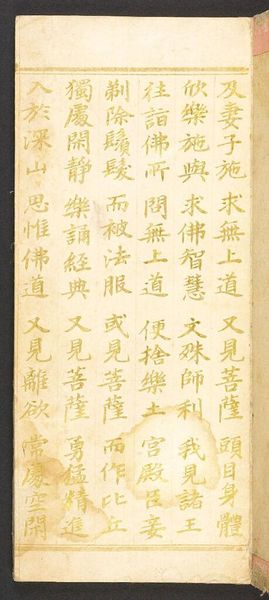 及妻子施 求無上道 又見菩薩 頭目身體
欣樂施與 求佛智慧 文殊師利 我見諸王
往詣佛所 問無上道 便捨樂土 宮殿臣妾
剃除鬚髮 而被法服 或見菩薩 而作比丘
獨處閑靜 樂誦經典 又見菩薩 勇猛精進
入於深山 思惟佛道 又見離欲 常處空閑